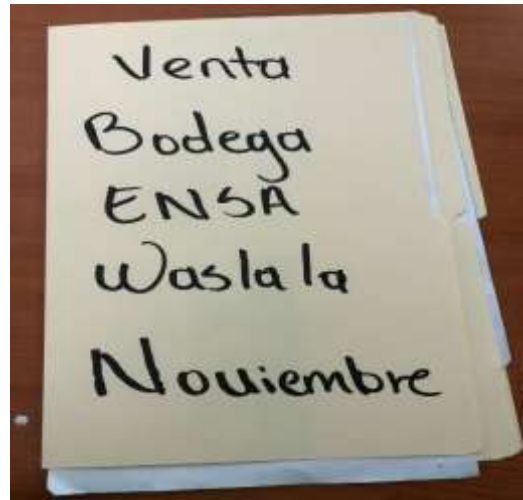 Venta
Bodega
ENSA
Waslala
Noviembre